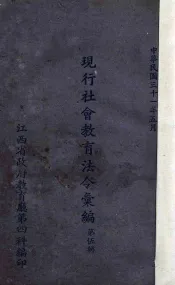 中華民國三十一年五月
現行社會教育法令彙編 第伍輯
江西省政府教育廳第四科編印